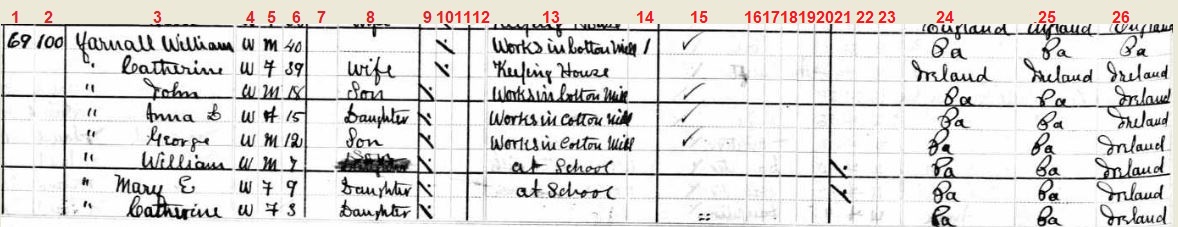 1 2 3 4 5 6 7 8 9 10 11 12 13 14 15 16 17 18 19 20 21 22 23 24 25 26
69 100 Yarnall William W M 40 Works in Cotton Mill 1 ✓ Pa Pa Pa
" Catherine W F 39 Wife Keeping House Ireland Ireland Ireland
" John W M 18 Son Works in Cotton Mill ✓ Pa Pa Ireland
" Anna W F 15 Daughter Works in Cotton Mill ✓ Pa Pa Ireland
" George W M 12 Son Works in Cotton Mill ✓ Pa Pa Ireland
" William W M 7 at School Pa Pa Ireland
" Mary E W F 9 Daughter at School Pa Pa Ireland
" Catherine W F 3 Daughter Pa Pa Ireland